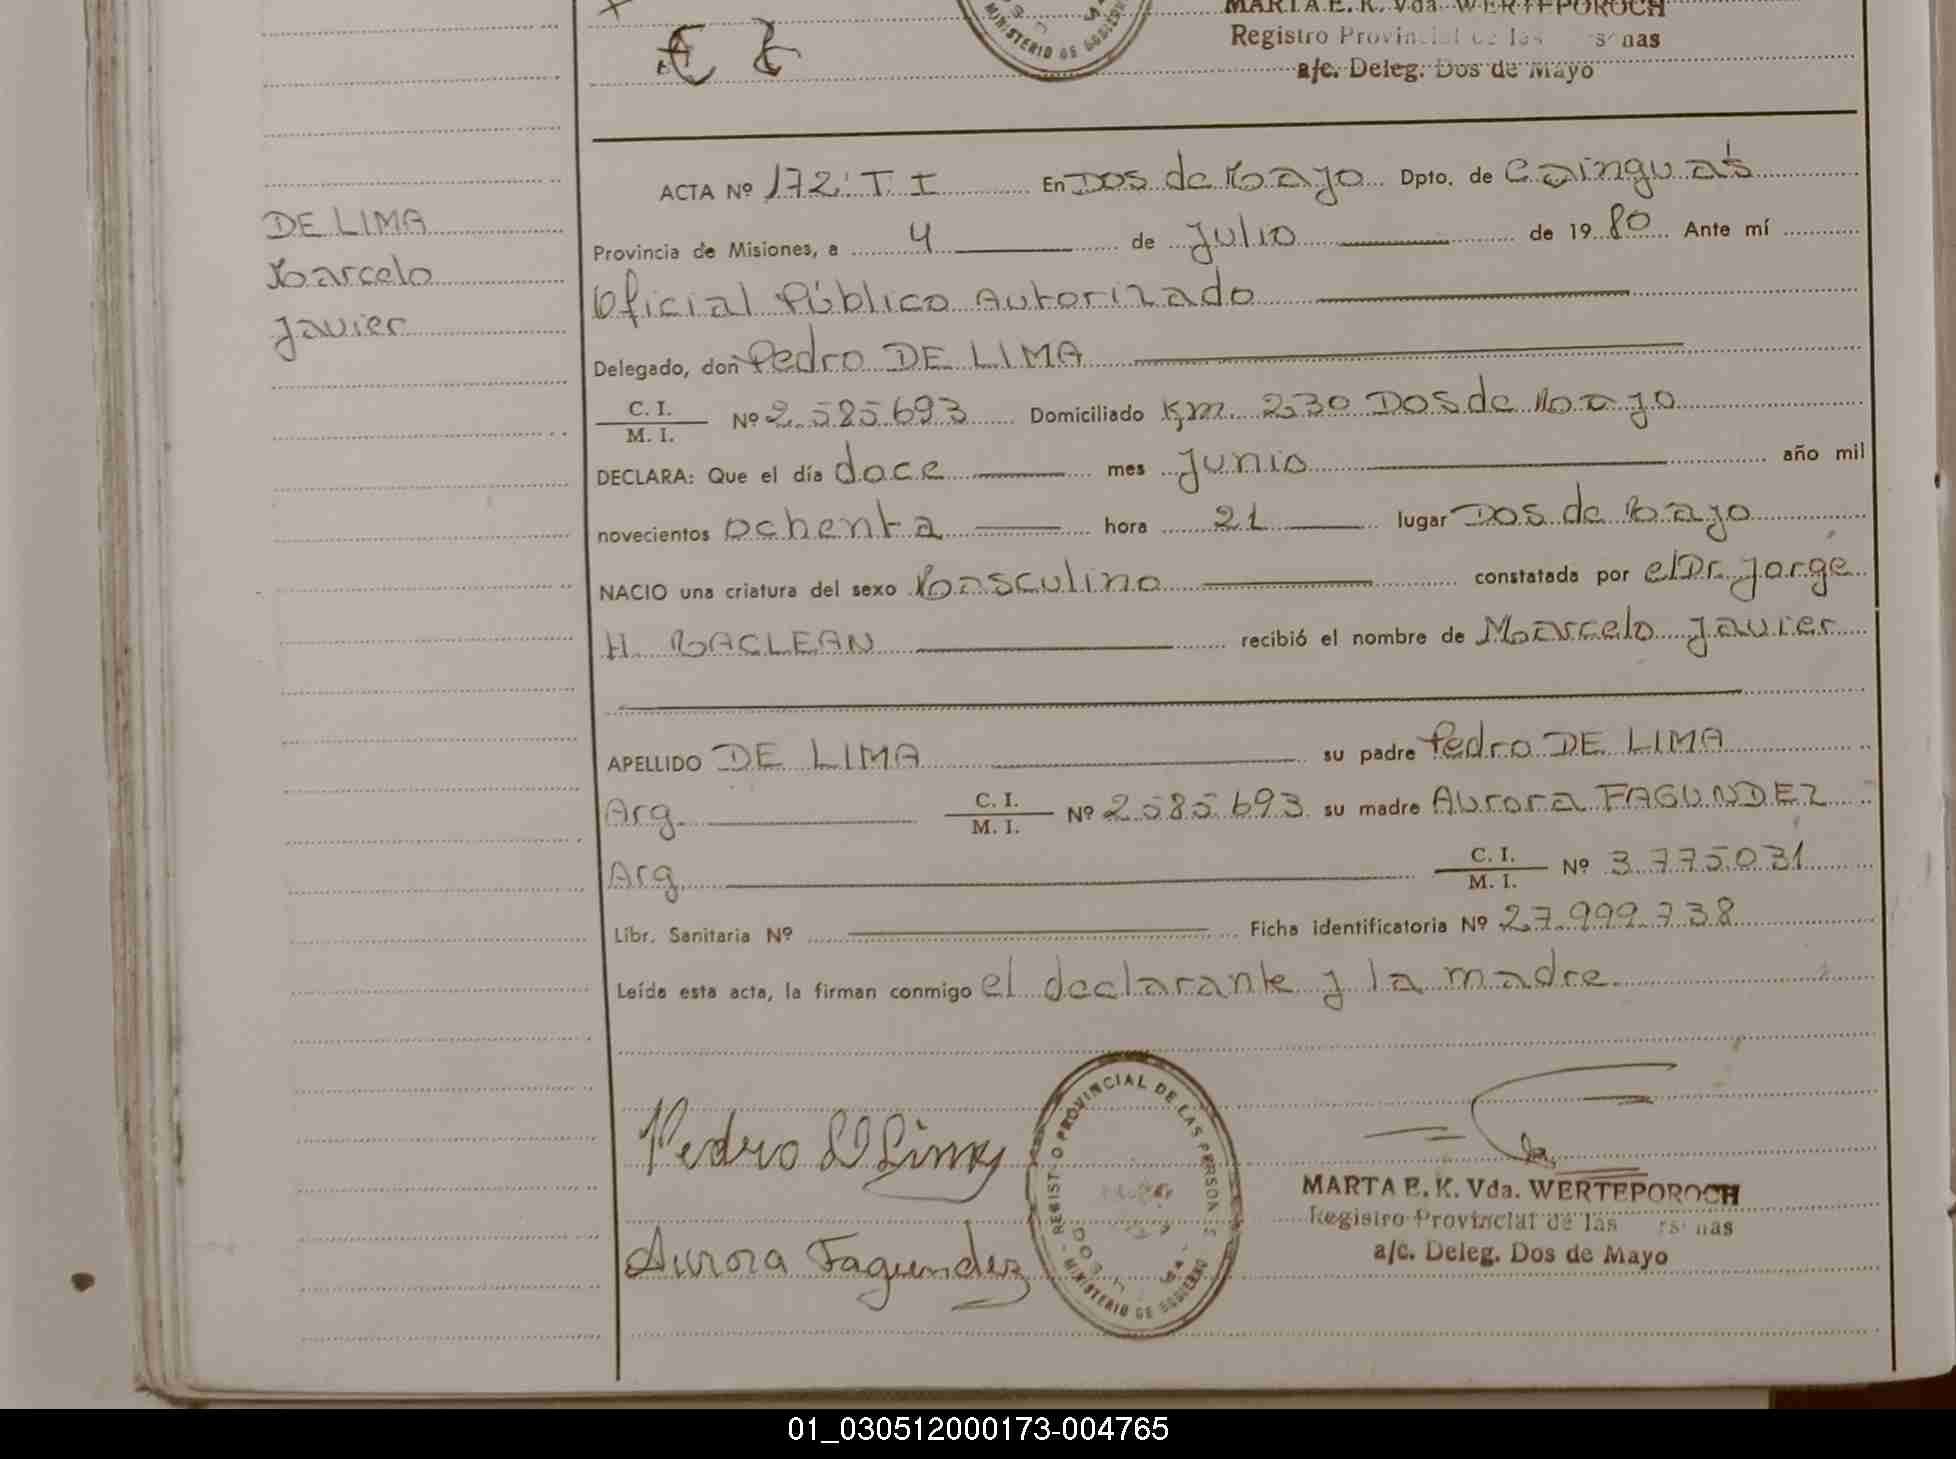 MARTA E. K. Vda. WERTEPOROCH
Registro Provincial de las sonas
a/c. Deleg. Dos de Mayo
MINISTERIO DE GOBIERNO
DE LIMA
Marcelo
Javier
ACTA Nº 172 T I En Dos de Mayo Dpto. de Cainguás
Provincia de Misiones, a 4 de Julio de 1980 Ante mí
Oficial Público Autorizado
Delegado, don Pedro DE LIMA
C. I.
M. I. Nº 2.585.693 Domiciliado Km. 230 Dos de Mayo
DECLARA: Que el día doce mes Junio año mil
novecientos ochenta hora 21 lugar Dos de Mayo
NACIO una criatura del sexo Masculino constatada por el Dr. Jorge
H. MACLEAN recibió el nombre de Marcelo Javier
APELLIDO DE LIMA su padre Pedro DE LIMA
Arg. C. I.
M. I. Nº 2.585.693 su madre Aurora FAGUNDEZ
Arg. C. I.
M. I. Nº 3.775.031
Libr. Sanitaria Nº Ficha identificatoria Nº 27.999.738
Leída esta acta, la firman conmigo el declarante y la madre.
Pedro D Lima
Aurora Fagundez
REGISTRO PROVINCIAL DE LAS PERSONAS
MINISTERIO DE GOBIERNO
MARTA E. K. Vda. WERTEPOROCH
Registro Provincial de las rsonas
a/c. Deleg. Dos de Mayo
01_030512000173-004765